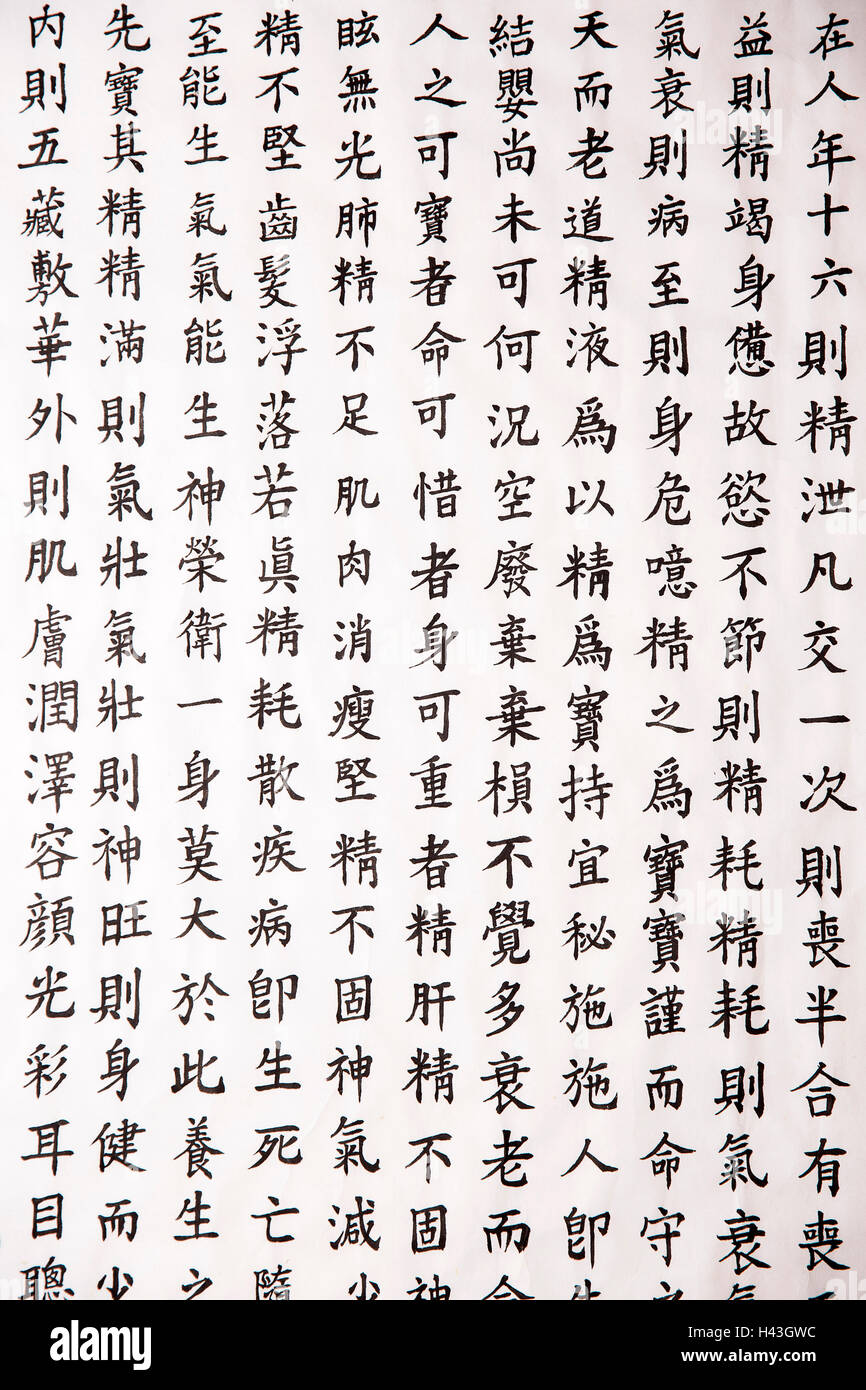 在人年十六則精泄凡交一次則喪半合有喪
益則精竭身憊故慾不節則精耗精耗則氣衰
氣衰則病至則身危噫精之為寶寶謹而命守
天而老道精液為以精為寶持宜秘施施人卽
結嬰尚未可何況空廢棄棄損不覺多衰老而
人之可寶者命可惜者身可重者精肝精不固
眩無光肺精不足肌肉消瘦堅精不固神氣減
精不堅齒髮浮落若眞精耗散疾病卽生死亡隨
至能生氣氣能生神榮衛一身莫大於此養生之
先寶其精精滿則氣壯氣壯則神旺則身健而
內則五藏敷華外則肌膚潤澤容顏光彩耳目聰
alamy
Image ID: H43GWC
www.alamy.com